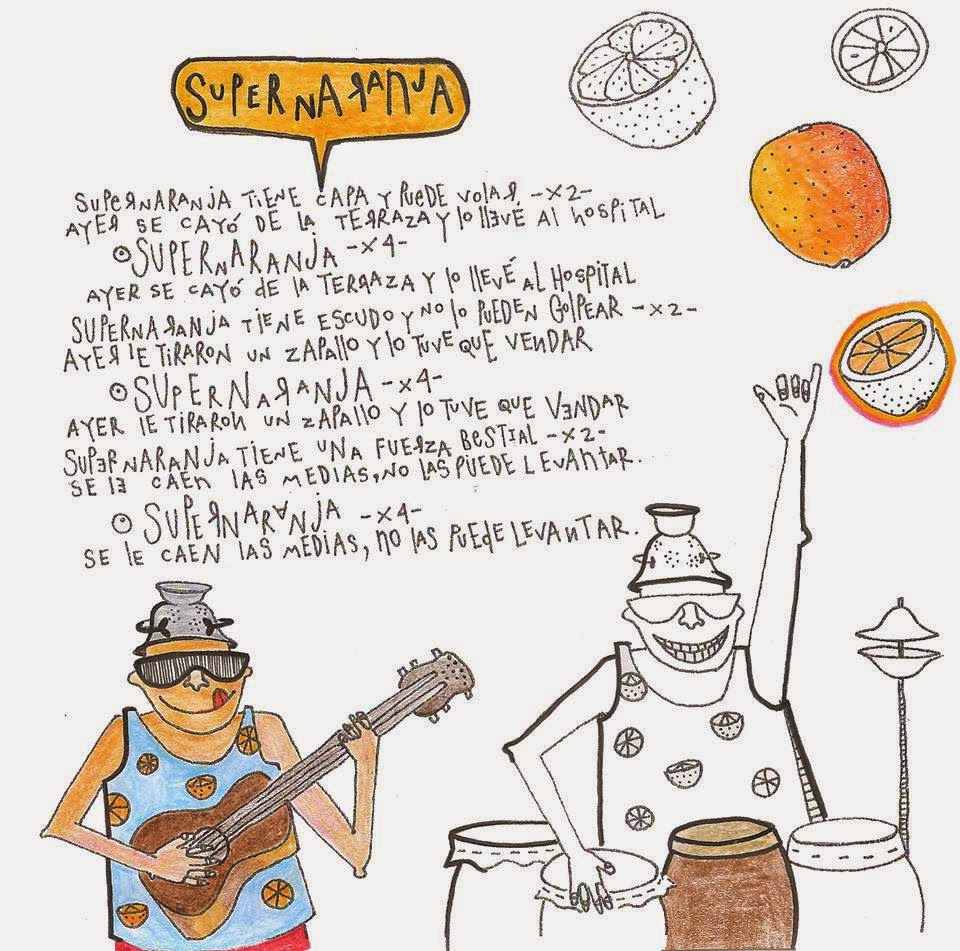 SUPERNARANJA
SUPERNARANJA TIENE CAPA Y PUEDE VOLAR -X2-
AYER SE CAYÓ DE LA TERRAZA Y LO LLEVÉ AL HOSPITAL
SUPERNARANJA -X4-
AYER SE CAYÓ DE LA TERRAZA Y LO LLEVÉ AL HOSPITAL
SUPERNARANJA TIENE ESCUDO Y NO LO PUEDEN GOLPEAR -X2-
AYER LE TIRARON UN ZAPALLO Y LO TUVE QUE VENDAR
SUPERNARANJA -X4-
AYER LE TIRARON UN ZAPALLO Y LO TUVE QUE VENDAR
SUPERNARANJA TIENE UNA FUERZA BESTIAL -X2-
SE LE CAEN LAS MEDIAS, NO LAS PUEDE LEVANTAR.
SUPERNARANJA -X4-
SE LE CAEN LAS MEDIAS, NO LAS PUEDE LEVANTAR.